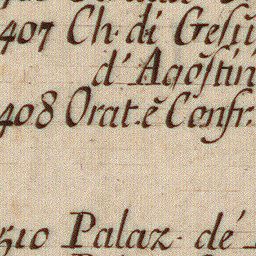 407 Ch. di Gesù
d' Agostin
408 Orat. è Confr.
510 Palaz. dé